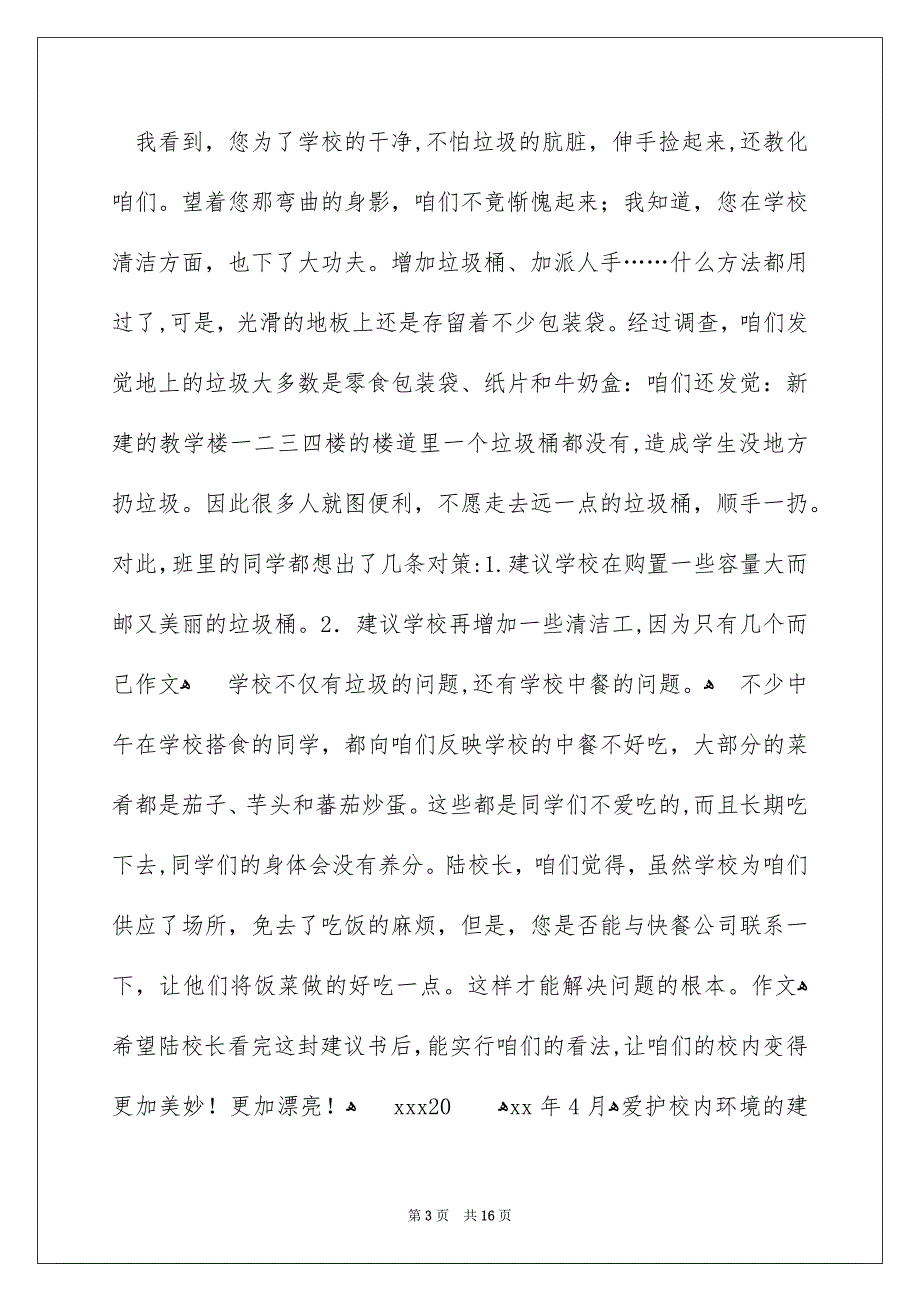 我看到，您为了学校的干净,不怕垃圾的肮脏，伸手捡起来,还教化
咱们。望着您那弯曲的身影，咱们不竟惭愧起来；我知道，您在学校
清洁方面，也下了大功夫。增加垃圾桶、加派人手……什么方法都用
过了,可是，光滑的地板上还是存留着不少包装袋。经过调查，咱们发
觉地上的垃圾大多数是零食包装袋、纸片和牛奶盒：咱们还发觉：新
建的教学楼一二三四楼的楼道里一个垃圾桶都没有,造成学生没地方
扔垃圾。因此很多人就图便利，不愿走去远一点的垃圾桶，顺手一扔。
对此,班里的同学都想出了几条对策:1.建议学校在购置一些容量大而
邮又美丽的垃圾桶。2．建议学校再增加一些清洁工,因为只有几个而
已作文ﻫ 学校不仅有垃圾的问题,还有学校中餐的问题。ﻫ 不少中
午在学校搭食的同学，都向咱们反映学校的中餐不好吃，大部分的菜
肴都是茄子、芋头和蕃茄炒蛋。这些都是同学们不爱吃的,而且长期吃
下去,同学们的身体会没有养分。陆校长，咱们觉得，虽然学校为咱们
供应了场所，免去了吃饭的麻烦，但是，您是否能与快餐公司联系一
下，让他们将饭菜做的好吃一点。这样才能解决问题的根本。作文ﻫ
希望陆校长看完这封建议书后,能实行咱们的看法,让咱们的校内变得
更加美妙！更加漂亮！ﻫ xxx20 ﻫxx 年 4 月ﻫ爱护校内环境的建
第 3 页 共 16 页